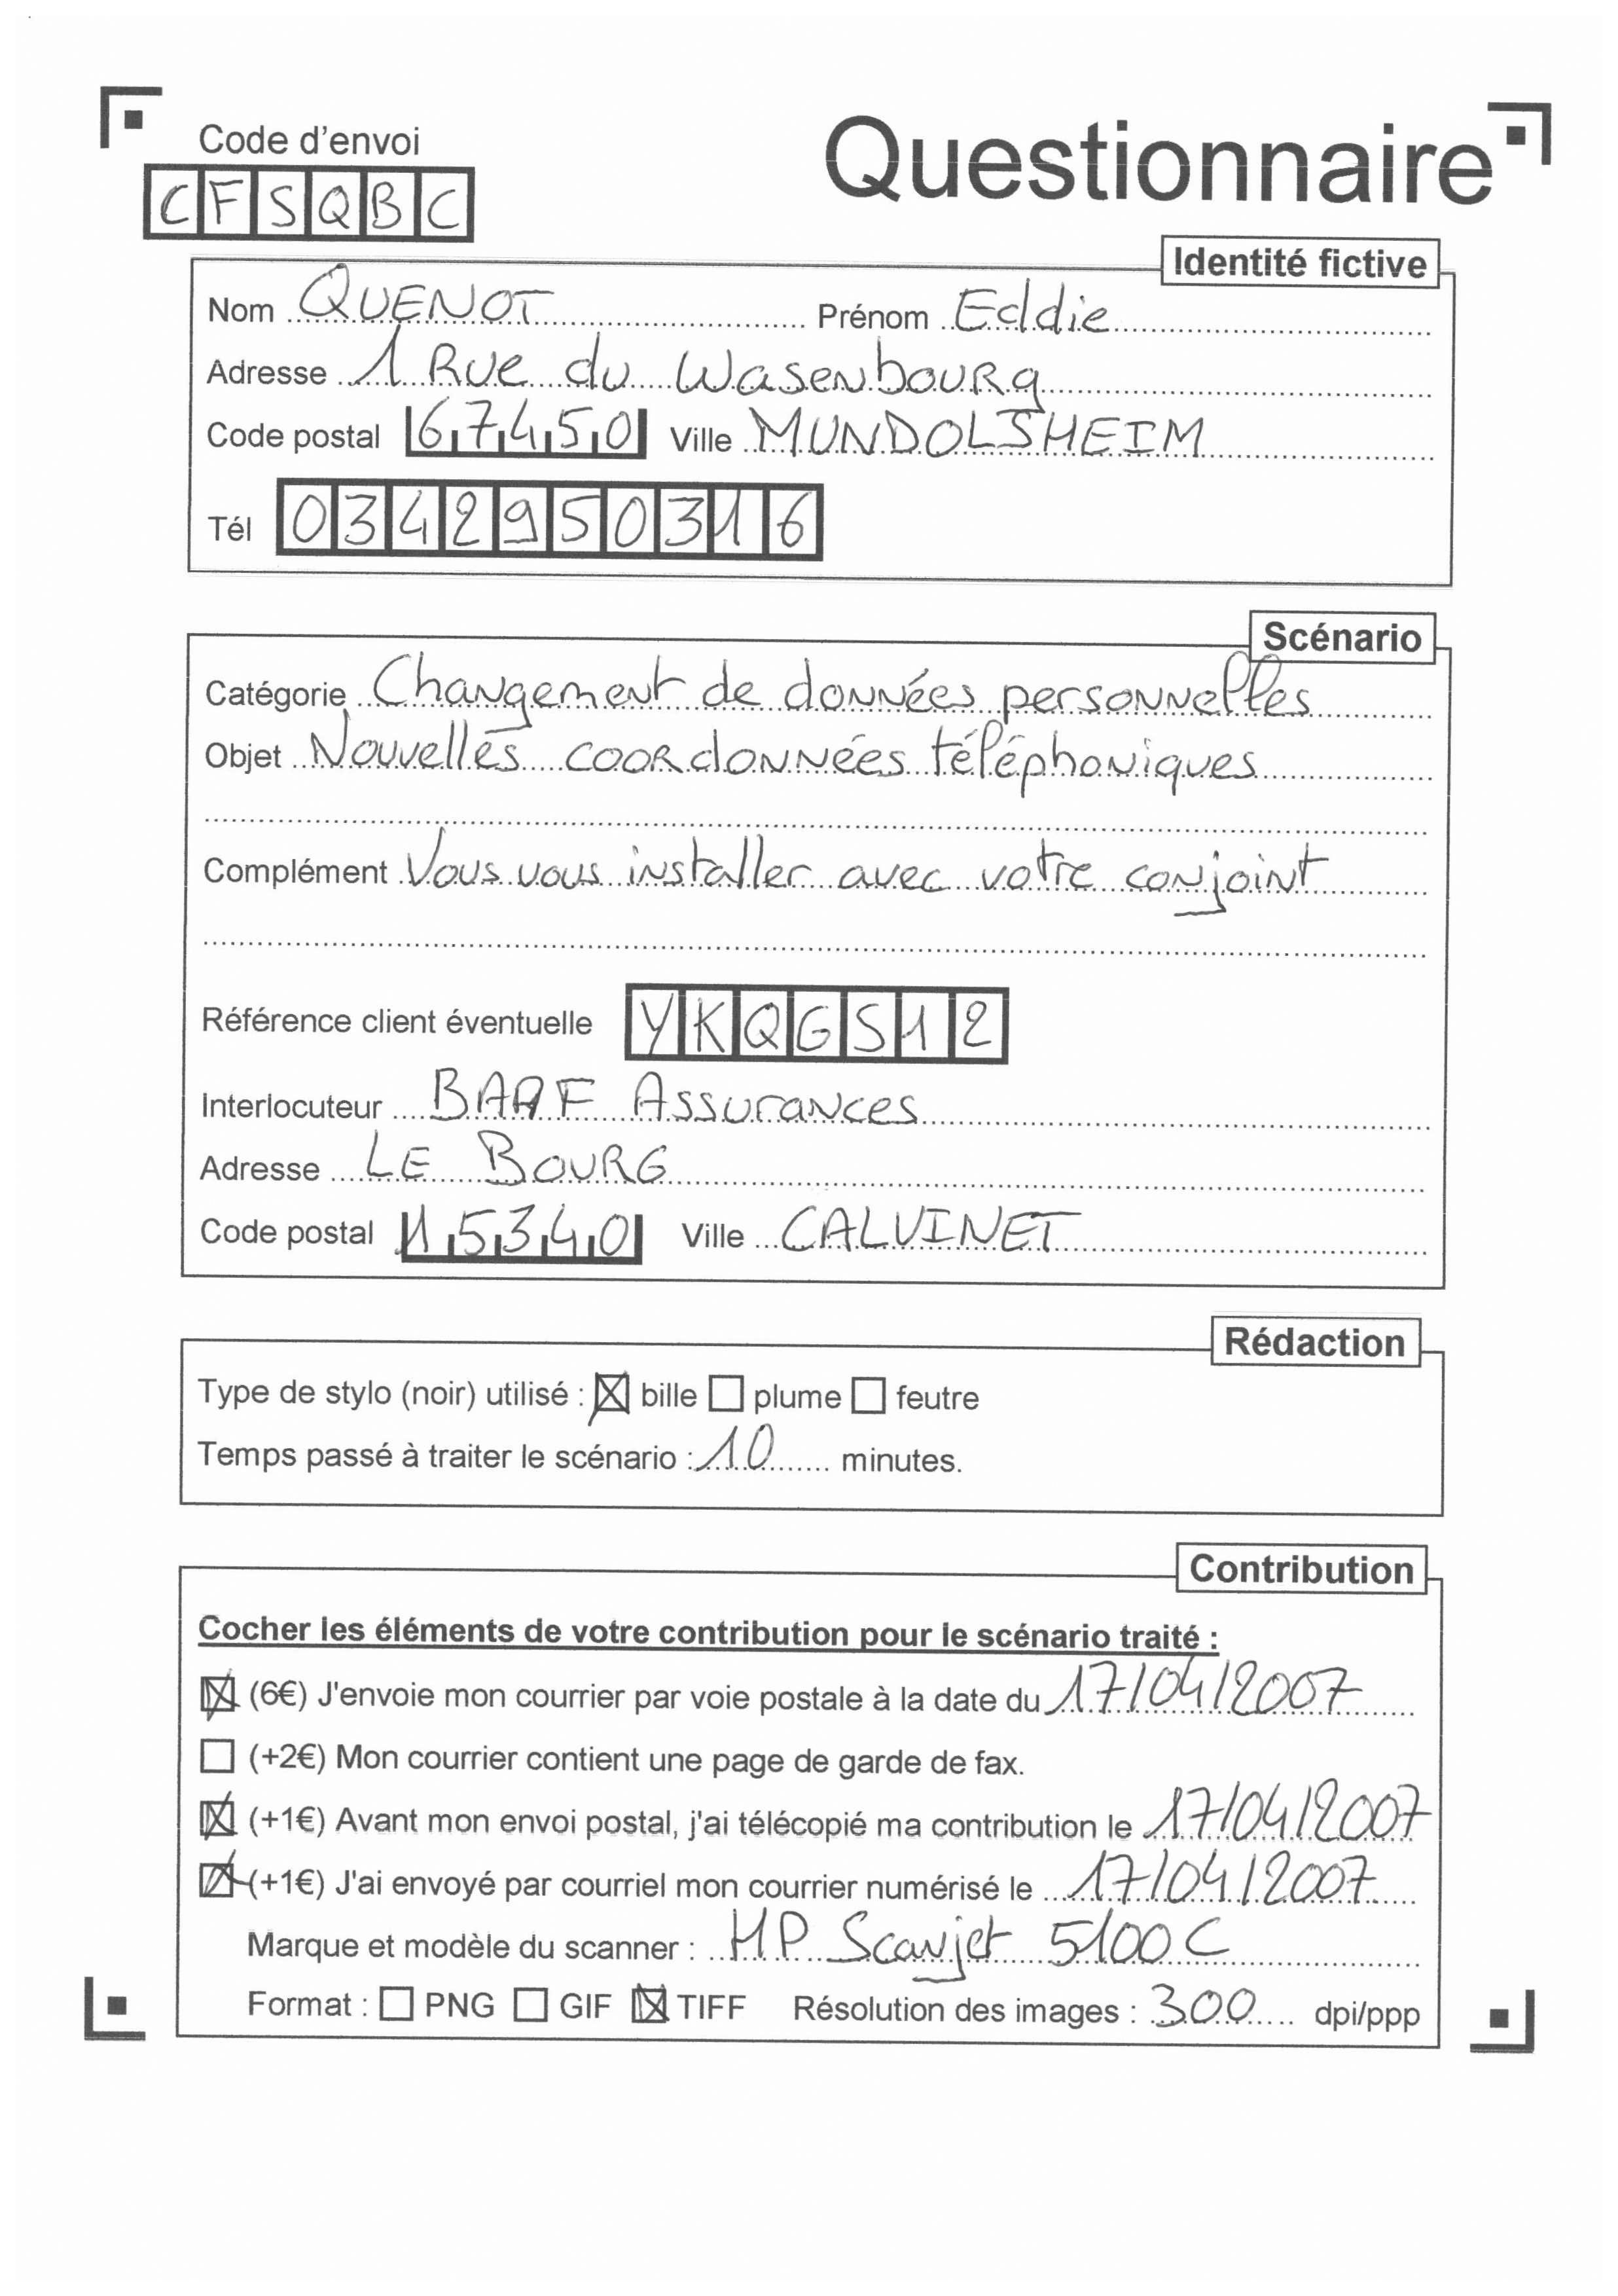 Code d'envoi
Questionnaire
CFSQBC
Identité fictive
Nom QUENOT Prénom Eddie
Adresse 1 Rue du Wasenbourg
Code postal 67450 Ville MUNDOLSHEIM
Tél 0342950316
Scénario
Catégorie Changement de données personnelles
Objet Nouvelles coordonnées téléphoniques
Complément Vous vous installer avec votre conjoint
Référence client éventuelle YKQGS12
Interlocuteur BAAF Assurances
Adresse LE BOURG
Code postal 15340 Ville CALVINET
Rédaction
Type de stylo (noir) utilisé : bille plume feutre
Temps passé à traiter le scénario : 10 minutes.
Contribution
Cocher les éléments de votre contribution pour le scénario traité :
(6€) J'envoie mon courrier par voie postale à la date du 17/04/2007
(+2€) Mon courrier contient une page de garde de fax.
(+1€) Avant mon envoi postal, j'ai télécopié ma contribution le 17/04/2007
(+1€) J'ai envoyé par courriel mon courrier numérisé le 17/04/2007
Marque et modèle du scanner : HP Scanjet 5100C
Format : PNG GIF TIFF Résolution des images : 300 dpi/ppp